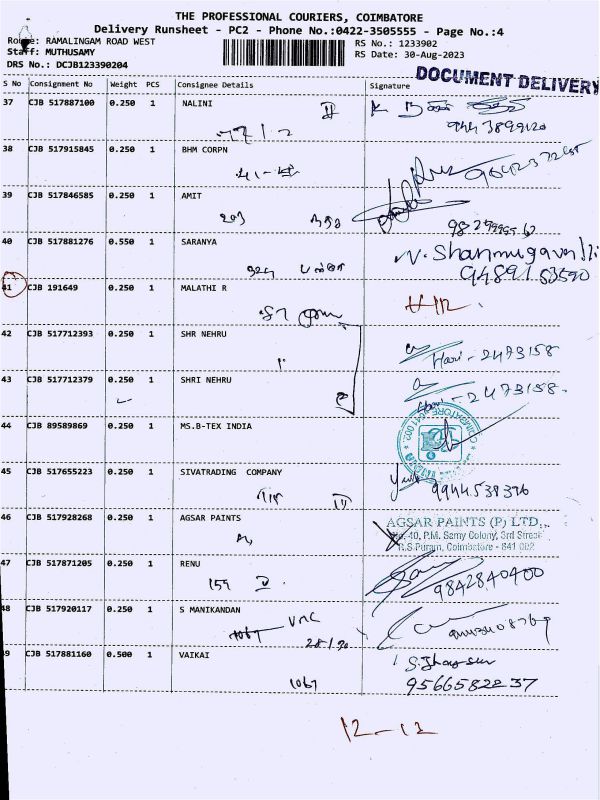 THE PROFESSIONAL COURIERS, COIMBATORE
Delivery Runsheet - PC2 - Phone No.:0422-3505555 - Page No.:4
Route: RAMALINGAM ROAD WEST
RS No.: 1233902
Staff: MUTHUSAMY
RS Date: 30-Aug-2023
DRS No.: DCJB123390204
DOCUMENT DELIVERY
S No Consignment No Weight PCS Consignee Details Signature
37 CJB 517887100 0.250 1 NALINI II
9443899120
38 CJB 517915845 0.250 1 BHM CORPN
39 CJB 517846585 0.250 1 AMIT
203
40 CJB 517881276 0.550 1 SARANYA N. Shanmugavalli
324 94891 53590
41 CJB 191649 0.250 1 MALATHI R
42 CJB 517712393 0.250 1 SHR NEHRU
Hari - 2473158
43 CJB 517712379 0.250 1 SHRI NEHRU
Hari - 2473158
44 CJB 89589869 0.250 1 MS.B-TEX INDIA
45 CJB 517655223 0.250 1 SIVATRADING COMPANY
9944538376
46 CJB 517928268 0.250 1 AGSAR PAINTS AGSAR PAINTS (P) LTD.,
No.40, P.M. Samy Colony, 3rd Street
R.S.Puram, Coimbatore - 641 002
47 CJB 517871205 0.250 1 RENU
159 9842840400
48 CJB 517920117 0.250 1 S MANIKANDAN
49 CJB 517881160 0.500 1 VAIKAI
1067 9566582237
12-12